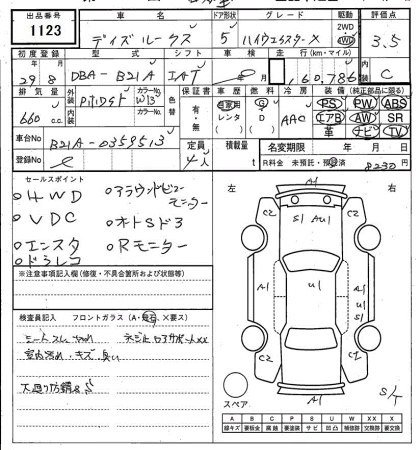 出品番号 車名 ドア形状 グレード 駆動 評価点
1123 デイズルークス 5 ハイウェイスターX 2WD 4WD 3.5
初度登録 型式 シフト 車検 走行(km・マイル) 内装
29.8 DBA-B21A IAT 160,786 C
排気量 外装 カラーNo. 色替 保証書 車歴 燃料 冷房 装備(純正部品に限る)
660 c.c. W13 有・無 自家用 レンタ G D AAC PS PW ABS
内装 カラーNo. エアB AW SR
革 ナビ TV
車台No. B21A-0359513 定員 4人 積載量 t 名変期限 年 月 日
登録No. R料金 未預託・預託済 8230円
セールスポイント 左 右
○4WD ○アラウンドビューモニター
○VDC ○オートSド3
○エンスタ ○Rモニター
○ドラレコ
※注意事項記入欄(修復・不具合箇所および状態等)
検査員記入 フロントガラス(A・飛石・X要ス)
シートスレ
室内汚れ・キズ・臭い
下廻り防錆
スペア
A1 C2 C2 S1 AU1
A1 U1 A1 U1 S1
C2 C1 A1 S/T
A B C P S U W X XX
線キズ 要板金 腐蝕 要塗装 サビ 凹凸 補修跡 要交換